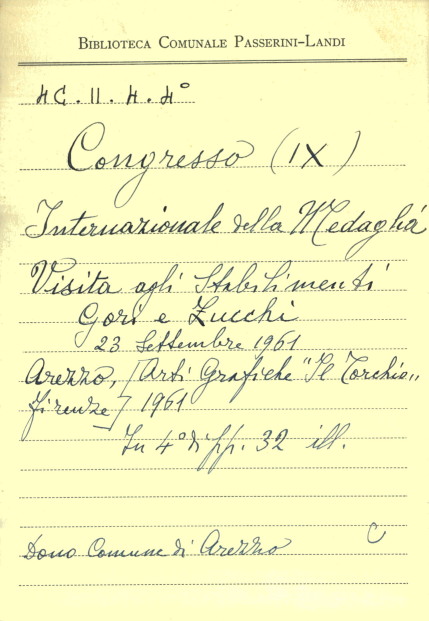 BIBLIOTECA COMUNALE PASSERINI-LANDI
4C.II.4.4°
Congresso (IX)
Internazionale della Medaglia
Visita agli Stabilimenti
Gori e Zucchi
23 Settembre 1961
Arezzo, [Arti Grafiche "Il Torchio„
Firenze] 1961
In 4° di pp. 32 ill.
C
Dono Comune di Arezzo